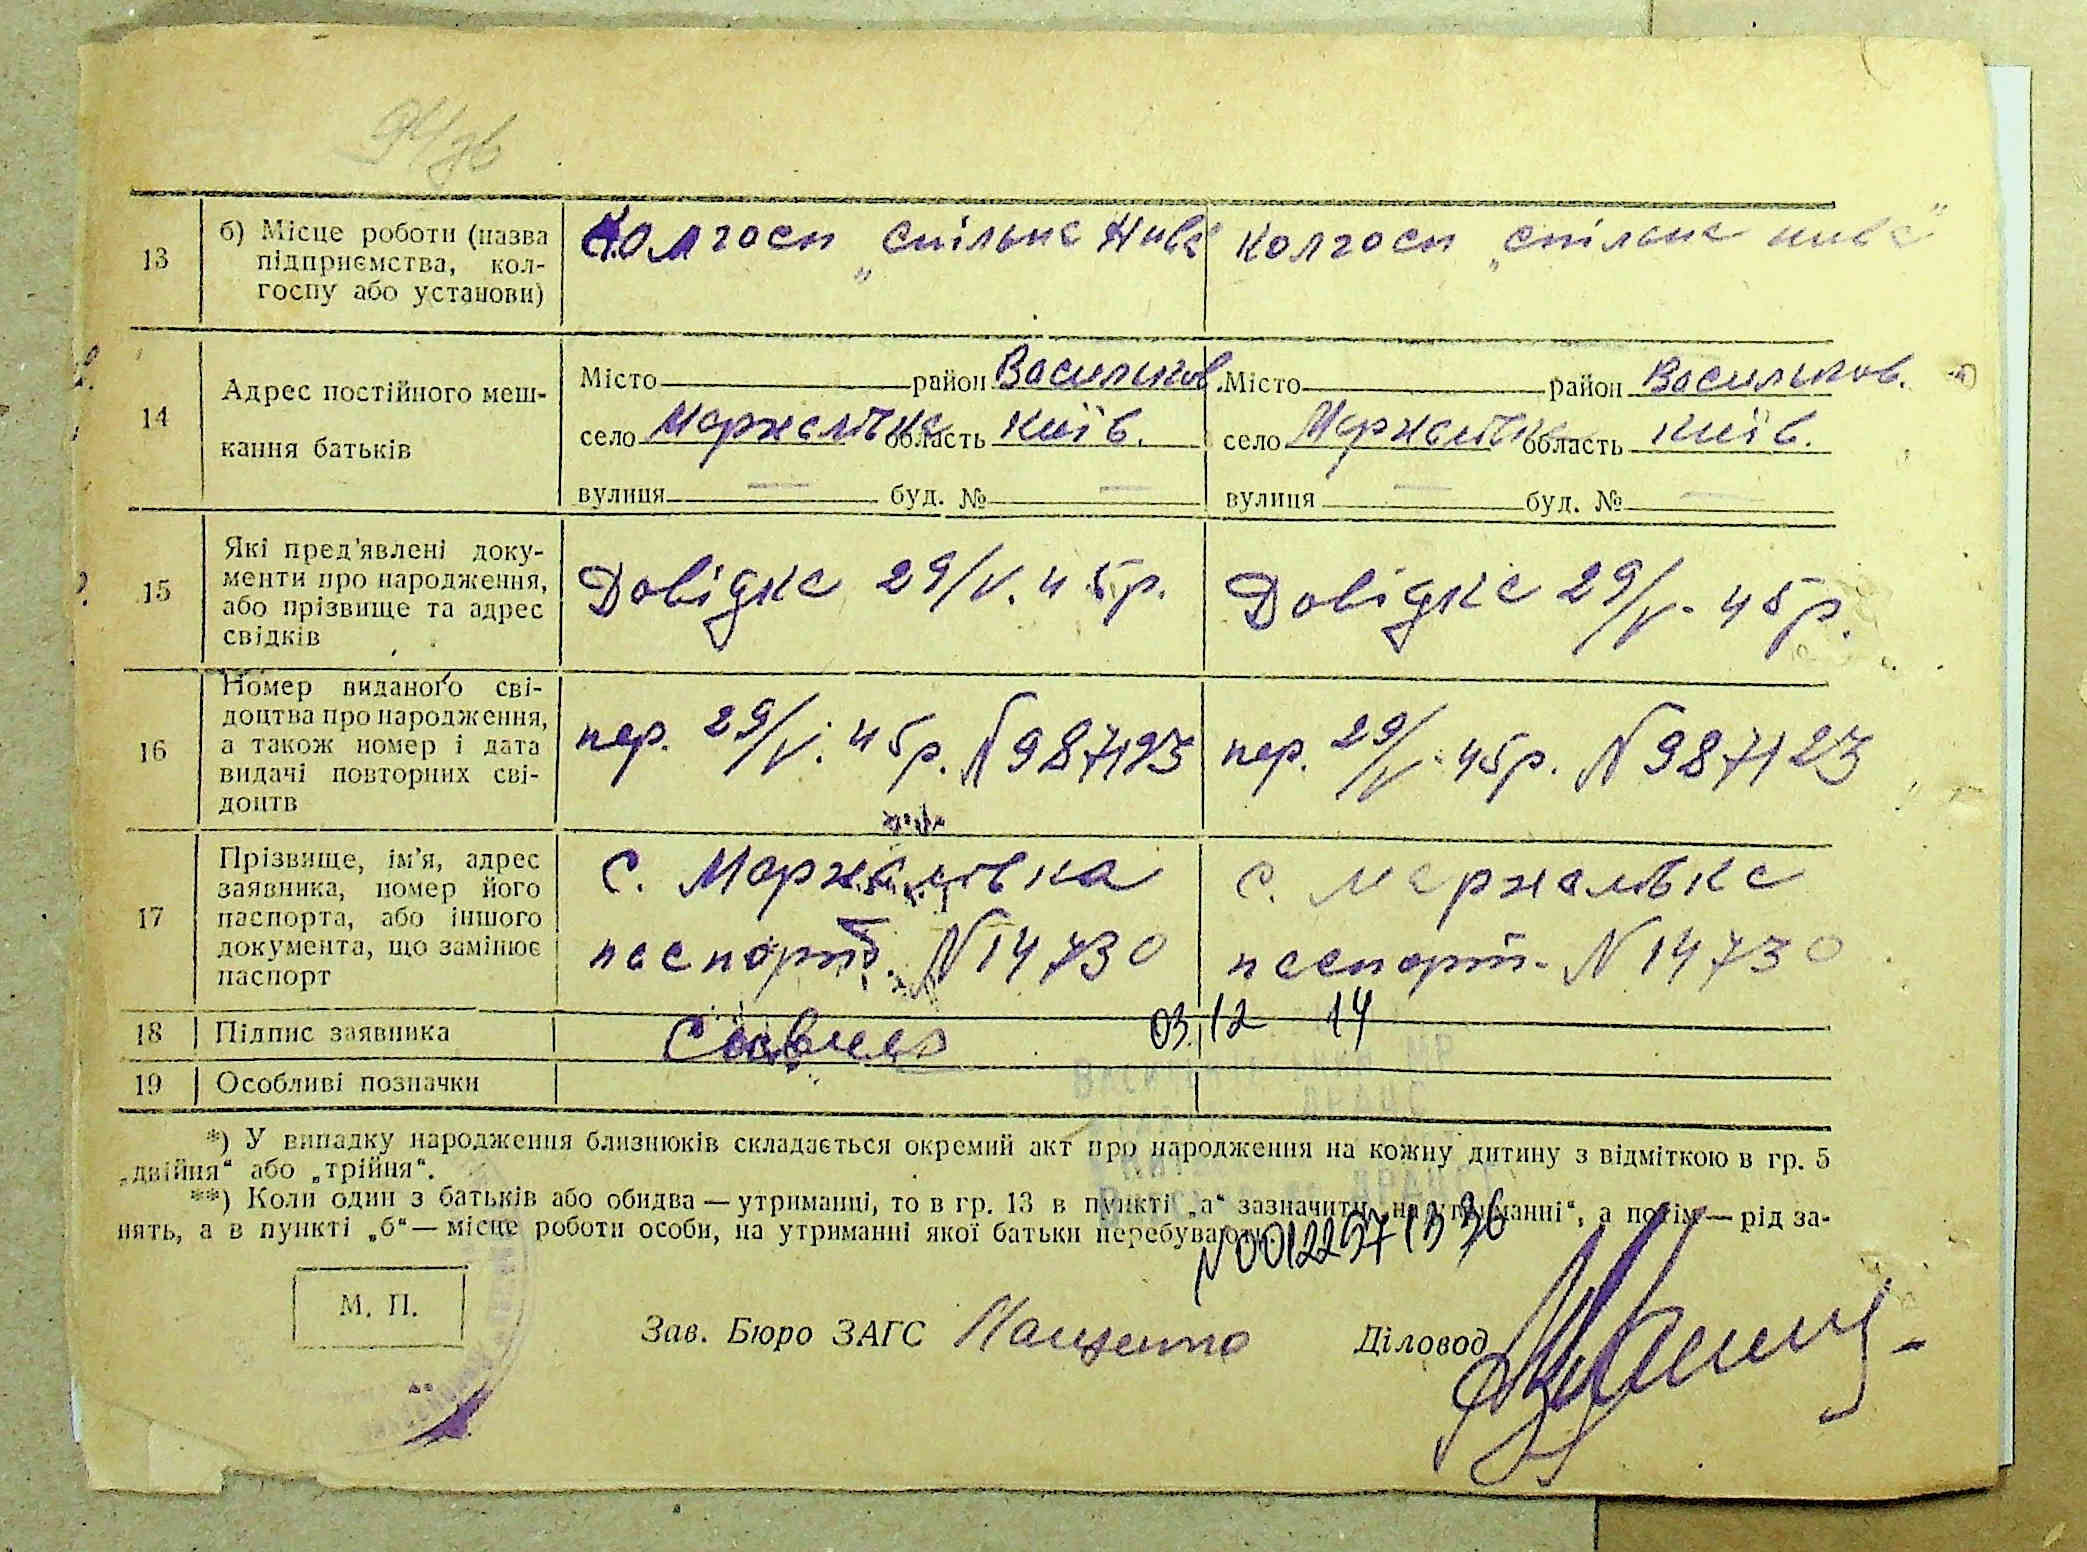 13
б) Місце роботи (назва
підприємства, кол-
госпу або установи)
Колгосп „Спільна Нива"
Колгосп „Спільна нива"
14
Адрес постійного меш-
кання батьків
Місто район Васильков.
село Мархалівка область Київ.
вулиця — буд. № —
Місто район Васильков.
село Мархалівка область Київ.
вулиця — буд. № —
15
Які пред'явлені доку-
менти про народження,
або прізвище та адрес
свідків
Довідка 29/V. 45р.
Довідка 29/V. 45р.
16
Номер виданого сві-
доцтва про народження,
а також номер і дата
видачі повторних сві-
доцтв
пер. 29/V. 45р. N 987123
пер. 29/V. 45р. N 987123
17
Прізвище, ім'я, адрес
заявника, номер його
паспорта, або іншого
документа, що замінює
паспорт
с. Мархалівка
паспорт. N 14730
с. Мархалівка
паспорт. N 14730
18 Підпис заявника
03.12 14
19 Особливі позначки
*) У випадку народження близнюків складається окремий акт про народження на кожну дитину з відміткою в гр. 5
„двійня“ або „трійня“.
**) Коли один з батьків або обидва — утриманці, то в гр. 13 в пункті „а“ зазначити „на утриманні“, а потім — рід за-
нять, а в пункті „б“ — місце роботи особи, на утриманні якої батьки перебувають.
М. П.
Зав. Бюро ЗАГС
Діловод